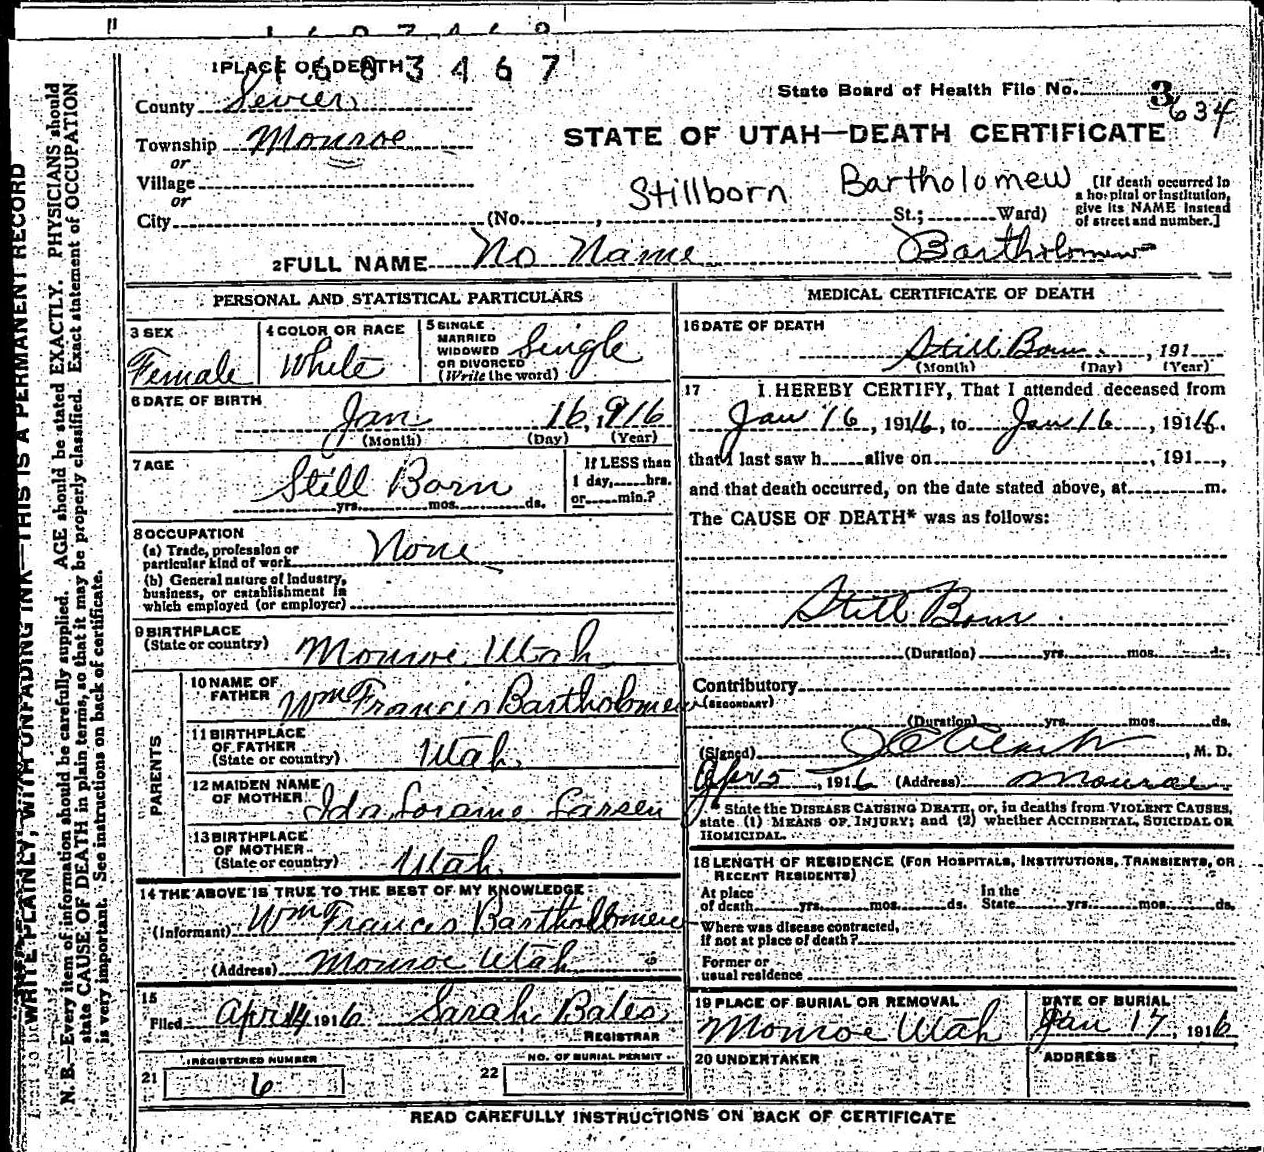 1683467
1 PLACE OF DEATH
County Sevier
State Board of Health File No. 3
634
Township Monroe
or
STATE OF UTAH—DEATH CERTIFICATE
Village
or
Stillborn Bartholomew
City (No. , St.; Ward)
[If death occurred in
a hospital or institution,
give its NAME instead
of street and number.]
2 FULL NAME No Name Bartholomew
PERSONAL AND STATISTICAL PARTICULARS
3 SEX
Female
4 COLOR OR RACE
White
5 SINGLE
MARRIED
WIDOWED
OR DIVORCED
(Write the word)
Single
6 DATE OF BIRTH
Jan 16, 1916
(Month) (Day) (Year)
7 AGE
Still Born
yrs. mos. ds.
If LESS than
1 day, hrs.
or min.?
8 OCCUPATION
(a) Trade, profession or
particular kind of work None
(b) General nature of industry,
business, or establishment in
which employed (or employer)
9 BIRTHPLACE
(State or country) Monroe Utah
PARENTS
10 NAME OF
FATHER Wm Francis Bartholomew
11 BIRTHPLACE
OF FATHER
(State or country) Utah
12 MAIDEN NAME
OF MOTHER Ida Loraine Larsen
13 BIRTHPLACE
OF MOTHER
(State or country) Utah
14 THE ABOVE IS TRUE TO THE BEST OF MY KNOWLEDGE
(Informant) Wm Francis Bartholomew
(Address) Monroe Utah
15
Filed Apr 14 1916 Sarah Bates
REGISTRAR
REGISTERED NUMBER
21 6
NO. OF BURIAL PERMIT
22
MEDICAL CERTIFICATE OF DEATH
16 DATE OF DEATH
Still Born , 191
(Month) (Day) (Year)
17 I HEREBY CERTIFY, That I attended deceased from
Jan 16 , 1916, to Jan 16 , 1916.
that I last saw h alive on , 191 ,
and that death occurred, on the date stated above, at m.
The CAUSE OF DEATH* was as follows:
Still Born
(Duration) yrs. mos. ds.
Contributory
(SECONDARY)
(Duration) yrs. mos. ds.
(Signed) , M. D.
Apr 5 , 1916 (Address) Monroe
* State the DISEASE CAUSING DEATH, or, in deaths from VIOLENT CAUSES,
state (1) MEANS OF INJURY; and (2) whether ACCIDENTAL, SUICIDAL OR
HOMICIDAL.
18 LENGTH OF RESIDENCE (FOR HOSPITALS, INSTITUTIONS, TRANSIENTS, OR
RECENT RESIDENTS)
At place
of death yrs. mos. ds.
In the
State yrs. mos. ds.
Where was disease contracted,
if not at place of death?
Former or
usual residence
19 PLACE OF BURIAL OR REMOVAL
Monroe Utah
DATE OF BURIAL
Jan 17, 1916
20 UNDERTAKER
ADDRESS
READ CAREFULLY INSTRUCTIONS ON BACK OF CERTIFICATE
WRITE PLAINLY, WITH UNFADING INK—THIS IS A PERMANENT RECORD
N. B.—Every item of information should be carefully supplied. AGE should be stated EXACTLY. PHYSICIANS should
state CAUSE OF DEATH in plain terms, so that it may be properly classified. Exact statement of OCCUPATION
is very important. See instructions on back of certificate.